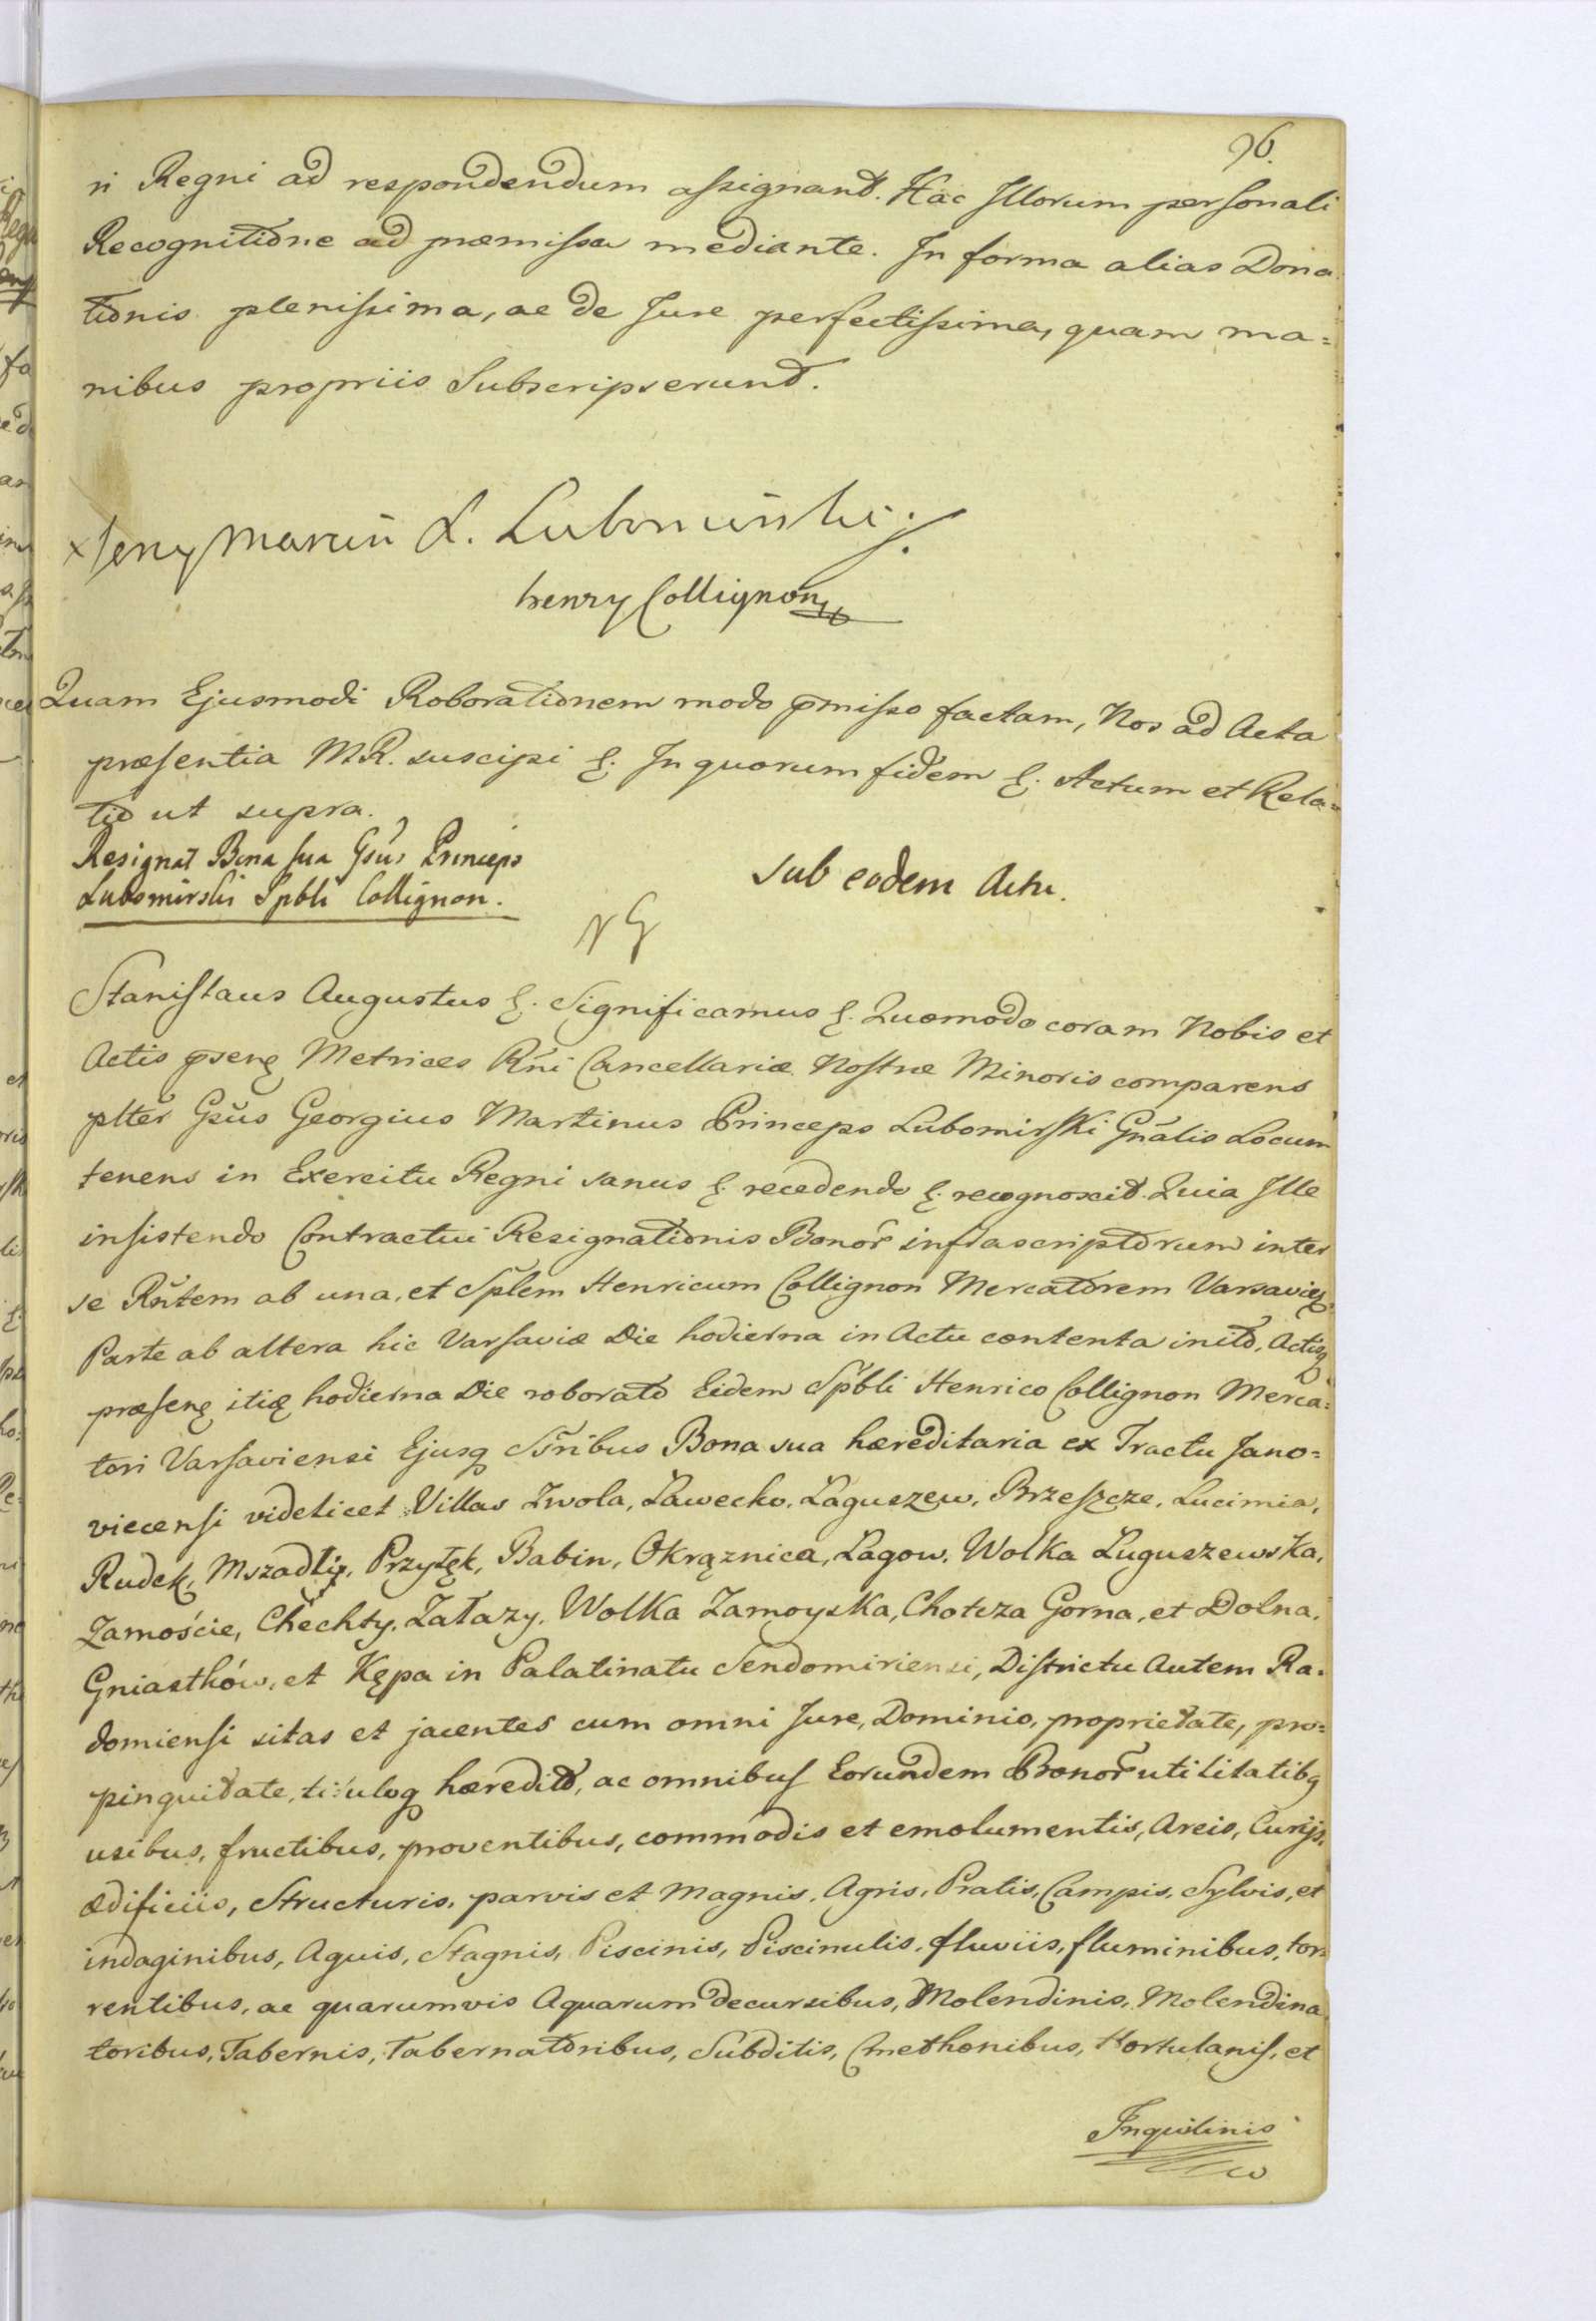 96.
ri Regni ad respondendum assignant. Hac Illorum personali
Recognitione ad præmissa mediante. In forma alias Dona
tionis plenissima, ac de Jure perfectissima, quam ma=
nibus propriis Subscripserunt.
Marcin L. Lubomirski
henry Collignon
Quam Ejusmodi Roborationem modo pmisso factam, Nos ad Acta
præsentia M.R. suscipi &. In quorum fidem &. Actum et Rela=
tio ut supra.
Resignat Bona sua Gsus Princeps
Lubomirski Spbli Collignon.
sub eodem Actu.
Stanislaus Augustus &. Significamus &. Quomodo coram Nobis et
Actis psenę Metrices Rni Cancellariæ Nostræ Minoris comparens
plter Gsus Georgius Martinus Princeps Lubomirski Gnalis Locum
tenens in Exercitu Regni sanus &. recedendo &. recognoscit. Quia Ille
insistendo Contractui Resignationis Bonor infrascriptorum inter
se Rntem ab una, et Splem Henricum Collignon Mercatorem Varsavieȩ
Parte ab altera hic Varsaviæ Die hodierna in Actu contenta inito, Actisq
præsenę itię hodierna Die roborato Eidem Spbli Henrico Collignon Merca=
tori Varsaviensi Ejusq Ssribus Bona sua hæreditaria ex Tractu Jano=
viecensi videlicet Villas Zwola, Ławecko, Łaguszew, Brzeszcze, Lucimia,
Rudek, Mszadlię, Przyłęk, Babin, Okrąznica, Łagow, Wolka Luguszewska,
Zamoście, Chechły, Załazy, Wolka Zamoyska, Chotcza Gorna, et Dolna,
Gniasthów, et Kępa in Palatinatu Sendomiriensi, Districtu Autem Ra=
domiensi sitas et jacentes cum omni Jure, Dominio, proprietate, pro=
pinquitate, tituloq hæredito, ac omnibus Eorundem Bonor utilitatibq
usibus, fructibus, proventibus, commodis et emolumentis, Areis, Curijs,
ædificiis, Structuris, parvis et Magnis, Agris, Pratis, Campis, Sylvis, et
indaginibus, Aquis, Stagnis, Piscinis, Piscinulis, fluviis, fluminibus, tor=
rentibus, ac quarumvis Aquarum decursibus, Molendinis, Molendina
toribus, Tabernis, Tabernatoribus, Subditis, Cmethonibus, Hortulanis, et
Inquilinis